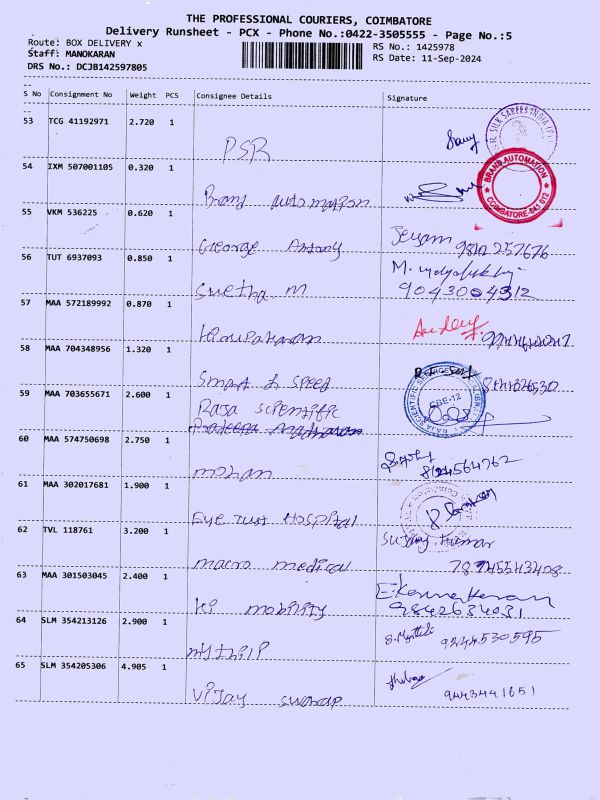 THE PROFESSIONAL COURIERS, COIMBATORE
Delivery Runsheet - PCX - Phone No.:0422-3505555 - Page No.:5
Route: BOX DELIVERY x
RS No.: 1425978
Staff: MANOKARAN
RS Date: 11-Sep-2024
DRS No.: DCJB142597805
S No Consignment No Weight PCS Consignee Details Signature
53 TCG 41192971 2.720 1
PSR
54 IXM 507001105 0.320 1
Brand automation
BRAND AUTOMATION
COIMBATORE-641 012
55 VKM 536225 0.620 1
George Antony Jeyam 9842257676
56 TUT 6937093 0.850 1
Swetha M 9043004312
57 MAA 572189992 0.870 1
Kirupakaran
58 MAA 704348956 1.320 1
Smart & Speed
59 MAA 703655671 2.600 1
Raja scientific
CBE-12
60 MAA 574750698 2.750 1
mohan 8124564762
61 MAA 302017681 1.900 1
Eye Trust Hospital
62 TVL 118761 3.200 1
macro medical
63 MAA 301503045 2.400 1
Ki mobility 9842634031
64 SLM 354213126 2.900 1
Mythili 9244530595
65 SLM 354205306 4.905 1
Vijay swarap 9443441651